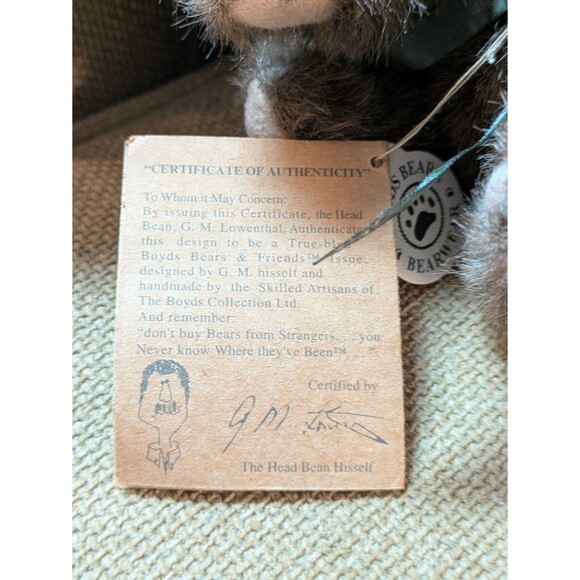 "CERTIFICATE OF AUTHENTICITY"
To Whom it May Concern:
By issuing this Certificate, the Head
Bean, G. M. Lowenthal, Authenticate
this design to be a True-blu
Boyds Bears & Friends™ Issue;
designed by G. M. hisself and
handmade by the Skilled Artisans of
The Boyds Collection Ltd.
And remember:
"don't buy Bears from Strangers. . .you
Never know Where they've Been™. . ."
Certified by
G M
The Head Bean Hisself
DS BEARS
BEARWEAR